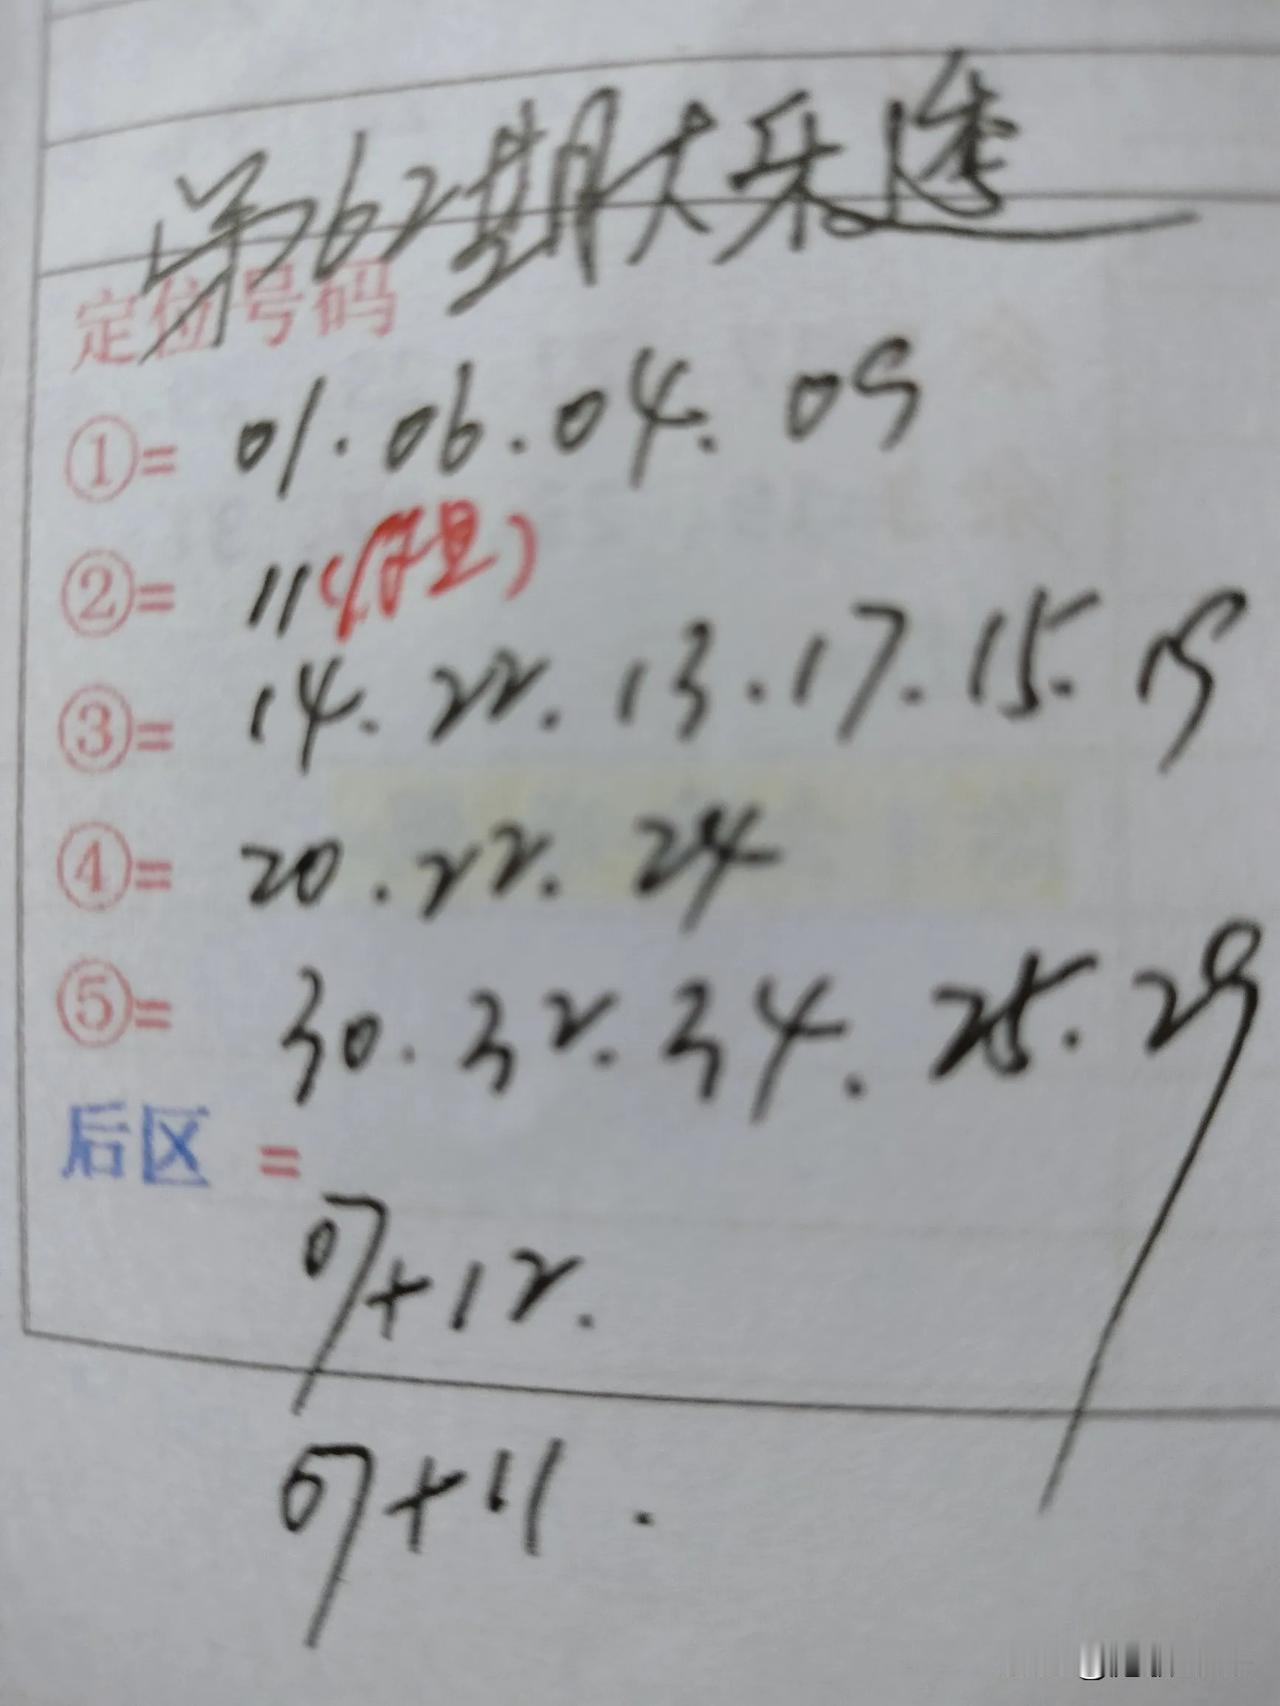 第062期大乐透
定位号码
①= 01.06.04.09
②= 11(胆)
③= 14.22.13.17.15.19
④= 20.22.24
⑤= 30.32.34.25.29
后区 =
07+12.
07+11.